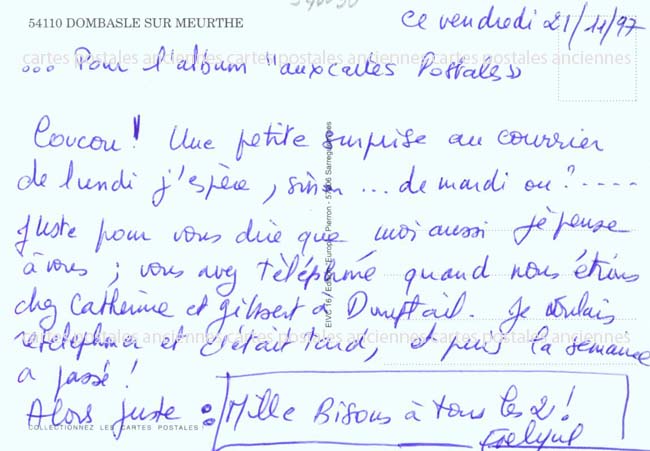 54110 DOMBASLE SUR MEURTHE
ce vendredi 21/11/97
cartes postales anciennes cartes postales anciennes cartes postales anciennes
... Pour l'album "aux cartes Postales"
Coucou! Une petite surprise au courrier
de lundi j'espère, sinon ... de mardi ou? ----
Juste pour vous dire que moi aussi je pense
à vous ; vous avez téléphoné quand nous étions
chez Catherine et Gilbert à. Je voulais
retéléphoner et c'était tard, et puis la semaine
cartes postales anciennes cartes postales anciennes cartes postales anciennes
a passé!
Alors juste : Mille Bisous à tous les 2!
COLLECTIONNEZ LES CARTES POSTALES !
Evelyne